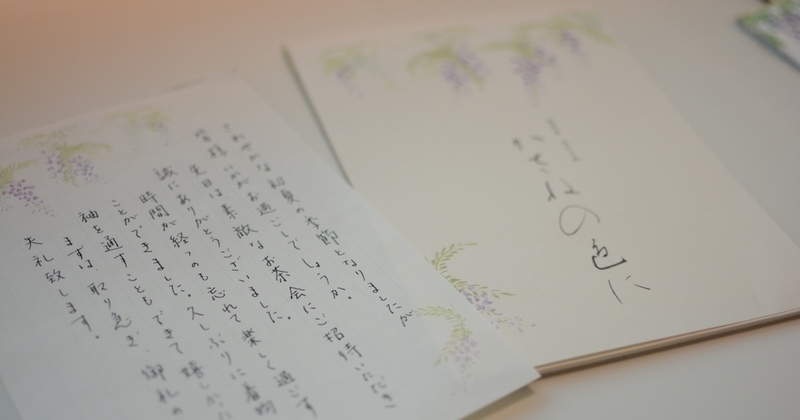 さわやかな初夏の季節となりましたが
皆様いかがお過ごしでしょうか。
先日は素敵なお茶会にご招待いただき
誠にありがとうございました。
時間が経つのも忘れて楽しく過ごす
ことができました。久しぶりに着物
袖を通すこともできて嬉しかった
まずは取り急ぎ、御礼の
失礼致します。
かさねの色に